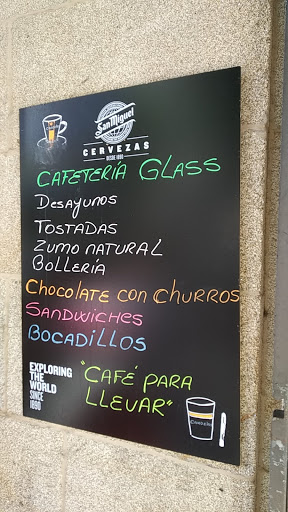 San Miguel
CERVEZAS
DESDE 1890
CAFETERÍA GLASS
DESAYUNOS
TOSTADAS
ZUMO NATURAL
BOLLERÍA
CHOCOLATE CON CHURROS
SANDWICHES
BOCADILLOS
EXPLORING
THE
WORLD
SINCE
1890
"CAFÉ PARA
LLEVAR"